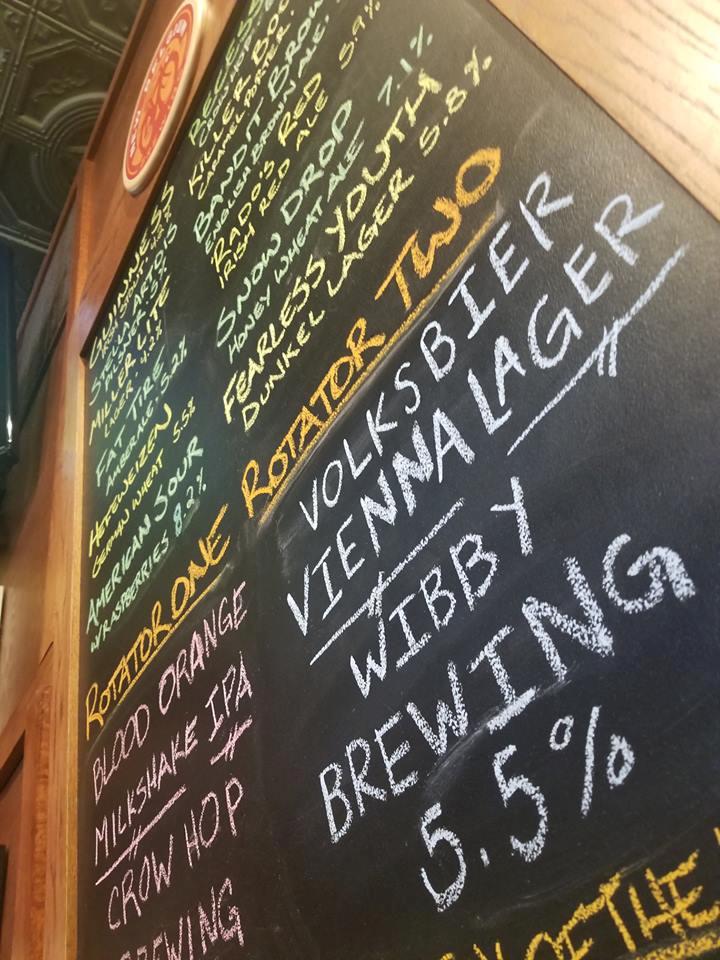 GUINNESS
STELLA ARTOIS
MILLER LITE
LAGER 4.2%
FAT TIRE
AMBER ALE 5.2%
HEFEWEIZEN
GERMAN WHEAT 5.5%
AMERICAN SOUR
W/RASPBERRIES 8.2%
KILLER
CARAMEL PORTER
BANDIT BROWN
ENGLISH BROWN ALE
5.9%
RADO'S RED
IRISH RED ALE
SNOW DROP 7.1%
HONEY WHEAT ALE
FEARLESS YOUTH
DUNKEL LAGER 5.8%
ROTATOR ONE
BLOOD ORANGE
MILKSHAKE IPA
CROW HOP
BREWING
ROTATOR TWO
VOLKSBIER
VIENNA LAGER
WIBBY
BREWING
5.5%
OF THE